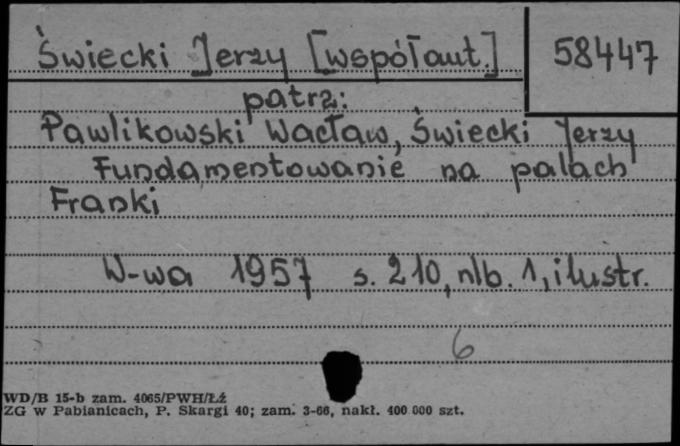 Świecki Jerzy [współaut.]
58447
patrz:
Pawlikowski Wacław, Świecki Jerzy
Fundamentowanie na palach
Franki
W-wa 1957 s. 210, nlb. 1, ilustr.
6
WD/B 15-b zam. 4065/PWH/Łź
ZG w Pabianicach, P. Skargi 40; zam. 3-66, nakł. 400 000 szt.